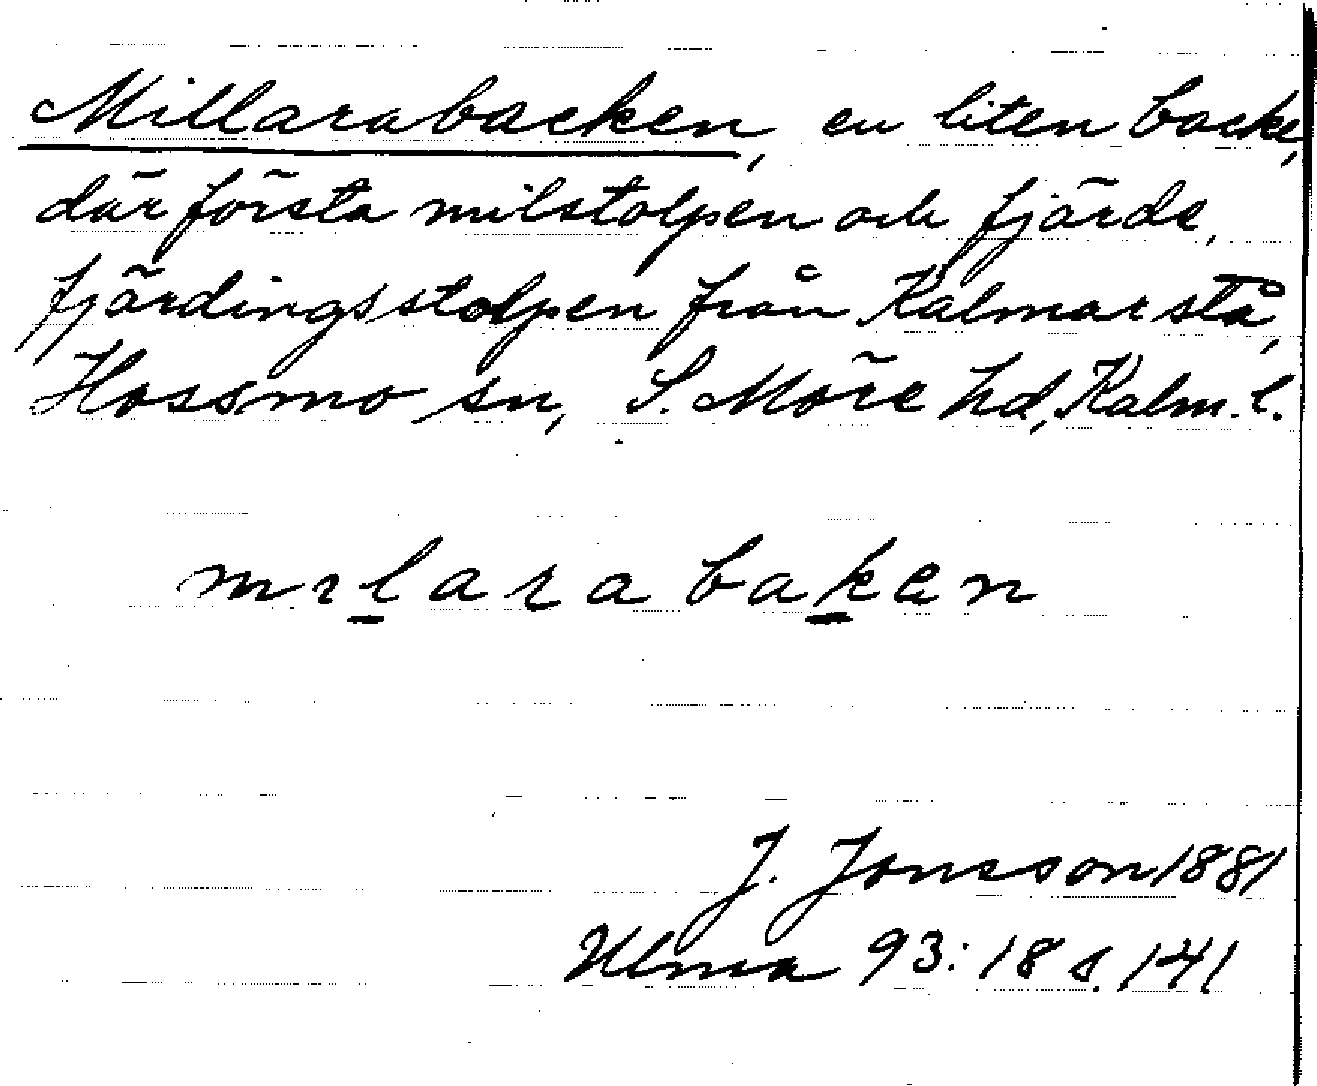 Millarabacken, en liten backe,
där första milstolpen och fjärde
fjärdingsstolpen från Kalmar stå,
Hossmo sn, S. Möre hd, Kalm. l.
mılarabaken
J. Jonsson 1881
Ulma 93:18 s. 141